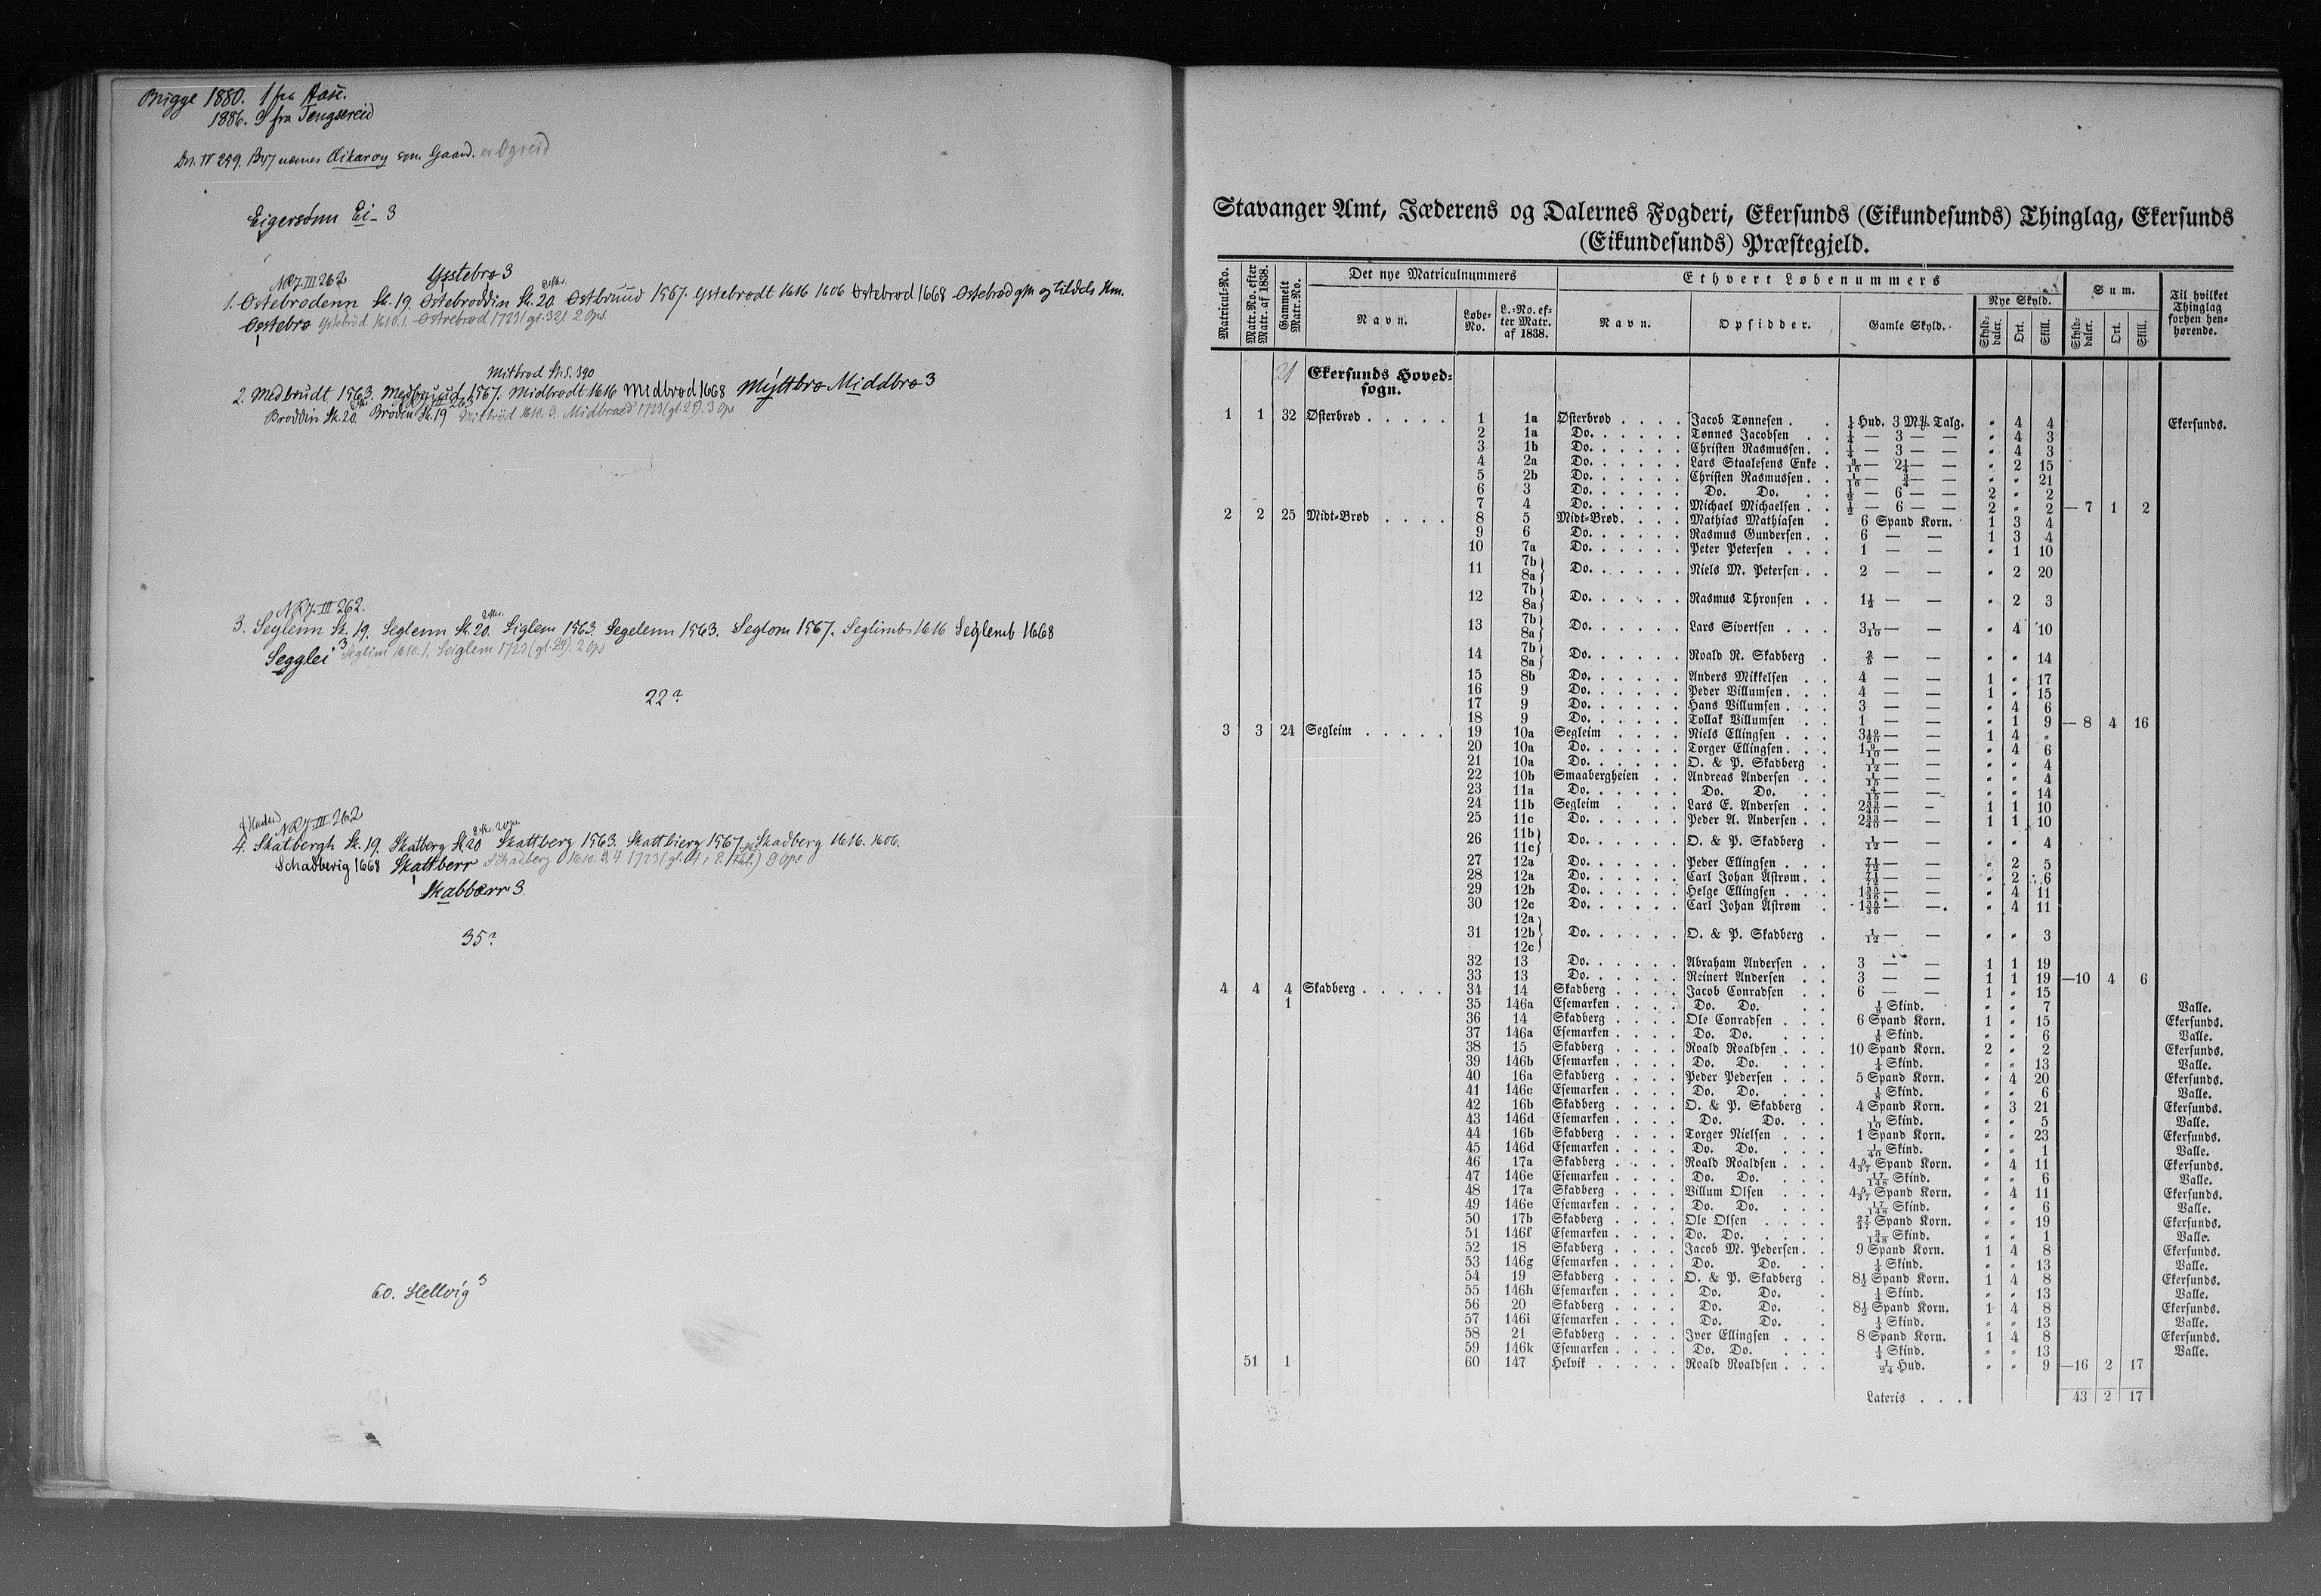 Brügge 1880. 1 fra Aase.
1886. 3 fra Tengsereid
Dn. IV 259. nævnes Eikaroy som Gaard. er Øgreid
Eigersönn Ei- 3
NRJ. III 262 Ysstebrø 3
1. Østebrodenn St. 19 Østebroddin St. 20. Østbruud 1567. Ystebrodt 1616 1606 Østebrød 1668 Østebrød
Østebrø Ystebröd 1610.1. Østrebrød 1723 (gl. 32) 2 Ops
Mitbrød St. S. 390
2. Medbrudt 1563. Medbruud 1567. Midbrodt 1616 Midbrød 1668 Myttbrø Middbrø 3
Broddin St. 20. Brodin St. 19 Mitbröd 1610. 3. Midbrøed 1723 (gl. 25). 3 Ops
NRJ. III 262.
3. Seglenn St. 19. Seglenn St. 20. Siglem 1563. Segelenn 1563. Seglom 1567. Seglimb 1616 Seglemb 1668
Segglei 3 Seglim 1610. 1. Seiglem 1723 (gl. 24). 2 Ops
22?
NRJ. III 262
4. Skatbergh St. 19. Skatberg St. 20 Skattberg 1563. Skattbierg 1567. Skadberg 1616. 1606.
Schadberig 1668 Skattberr Schadberg 1610. 4 1723 9 Ops
Skabbærr 3
35?
60. Hellvig 3
Stavanger Amt, Jæderens og Dalernes Fogderi, Ekersunds (Eikundesunds) Thinglag, Ekersunds
(Eikundesunds) Præstegjeld.
Matricul-No. Matr.-No. efter Matr. af 1838. Gammelt Matr.-No. Det nye Matriculnummers Ethvert Løbenummers Sum. Til hvilket Thinglag forhen henhørende.
Navn. Løbe-No. L.-No. efter Matr. af 1838. Navn. Opsidder. Gamle Skyld. Nye Skyld. Skylddaler. Ort. Skill. Skylddaler. Ort. Skill.
21 Ekersunds Hoved-
sogn.
1 1 32 Østerbrød . . . . . 1 1a Østerbrød . . . . Jacob Tønnesen . . ¼ Hud. 3 M℔ Talg. " 4 4 Ekersunds.
2 1a Do. . . . . . Tønnes Jacobsen . . ¼ — 3 — — " 4 3
3 1b Do. . . . . . Christen Rasmussen . . ¼ — 3 — — " 4 3
4 2a Do. . . . . . Lars Staalesens Enke . 3/16 — 2¼ — — " 2 15
5 2b Do. . . . . . Christen Rasmussen . . 1/16 — ¾ — — " " 21
6 3 Do. . . . . . Do. Do. . . ½ — 6 — — 2 " 2
7 4 Do. . . . . . Michael Michaelsen . . ½ — 6 — — 2 " 2 — 7 1 2
2 2 25 Midt-Brød . . . . 8 5 Midt-Brød . . . . Mathias Mathiasen . 6 Spand Korn. 1 3 4
9 6 Do. . . . . . Rasmus Gundersen . . 6 — — 1 3 4
10 7a Do. . . . . . Peter Petersen . . . 1 — — " 1 10
11 7b 8a} Do. . . . . . Niels M. Petersen . . 2 — — " 2 20
12 7b 8a} Do. . . . . . Rasmus Thronsen . . 1½ — — " 2 3
13 7b 8a} Do. . . . . . Lars Sivertsen . . . 3 1/10 — — " 4 10
14 7b 8a} Do. . . . . . Roald N. Skadberg . 2/5 — — " " 14
15 8b Do. . . . . . Anders Mikkelsen . . 4 — — 1 " 17
16 9 Do. . . . . . Peder Villumsen . . . 4 — — 1 " 15
17 9 Do. . . . . . Hans Villumsen . . . 3 — — " 4 6
18 9 Do. . . . . . Tollak Villumsen . . 1 — — " 1 9 — 8 4 16
3 3 24 Segleim . . . . . 19 10a Segleim . . . . Niels Ellingsen . . . 3 19/40 — — 1 4 "
20 10a Do. . . . . . Torger Ellingsen . . . 1 9/10 — — " 4 6
21 10a Do. . . . . . O. & P. Skadberg . 1/12 — — " " 4
22 10b Smaabergheien . . Andreas Andersen . . 1/15 — — " " 4
23 11a Do. . . . . . Do. Do. . . 4/15 — — " " 14
24 11b Segleim . . . . Lars E. Andersen . . 2 33/40 — - 1 1 10
25 11c Do. . . . . . Peder A. Andersen . . 2 33/40 — — 1 1 10
26 11b 11c} Do. . . . . . O. & P. Skadberg . 1/12 — — " " 4
27 12a Do. . . . . . Peder Ellingsen . . . 71/72 — — " 2 5
28 12a Do. . . . . . Carl Johan Åstrøm . . 71/72 — — " 2 6
29 12b Do. . . . . . Helge Ellingsen . . . 1 35/36 — — " 4 11
30 12c Do. . . . . . Carl Johan Åstrøm . 1 35/36 — — " 4 11
31 12a 12b 12c} Do. . . . . . O. & P. Skadberg . 1/12 — — " " 3
32 13 Do. . . . . . Abraham Andersen . . 3 — — 1 1 19
33 13 Do. . . . . . Reinert Andersen . . 3 — — 1 1 19 —10 4 6
4 4 4 Skadberg . . . . . 34 14 Skadberg . . . . Jacob Conradsen . . 6 — — 1 " 15
1 35 146a Esemarken . . . . Do. Do. . . ⅛ Skind. " " 7 Valle.
36 14 Skadberg . . . . Ole Conradsen . . . 6 Spand Korn. 1 " 15 Ekersunds.
37 146a Esemarken . . . . Do. Do. . . . ⅛ Skind. " " 6 Valle.
38 15 Skadberg . . . . Roald Roaldsen . . . 10 Spand Korn. 2 " 2 Ekersunds.
39 146b Esemarken . . . . Do. Do. . . . ¼ Skind. " " 13 Valle.
40 16a Skadberg . . . . Peder Pedersen . . . 5 Spand Korn. " 4 20 Ekersunds.
41 146c Esemarken . . . . Do. Do. . . . ⅛ Skind. " " 6 Valle.
42 16b Skadberg . . . . O. & P. Skadberg . 4 Spand Korn. " 3 21 Ekersunds.
43 146d Esemarken . . . . Do. Do. . . 1/10 Skind. " " 5 Valle.
44 16b Skadberg . . . . Torger Nielsen . . . 1 Spand Korn. " " 23 Ekersunds.
45 146d Esemarken . . . . Do. Do. . . . 1/40 Skind. " " 1 Valle.
46 17a Skadberg . . . . Roald Roaldsen . . . 4 5/37 Spand Korn. " 4 11 Ekersunds.
47 146e Esemarken . . . . Do. Do. . . . 17/148 Skind. " " 6 Valle.
48 17a Skadberg . . . . Villum Olsen . . . 4 5/37 Spand Korn. " 4 11 Ekersunds.
49 146e Esemarken . . . . Do. Do. . . . 17/148 Skind. " " 6 Valle.
50 17b Skadberg . . . . Ole Olsen . . . . 27/37 Spand Korn. " " 19 Ekersunds.
51 146f Esemarken . . . . Do. Do. . . . . 3/148 Skind. " " 1 Valle.
52 18 Skadberg . . . . Jacob M. Pedersen . . 9 Spand Korn. 1 4 8 Ekersunds.
53 146g Esemarken . . . . Do. Do. . . ¼ Skind. " " 13 Valle.
54 19 Skadberg . . . . O. & P. Skadberg . 8½ Spand Korn. 1 4 8 Ekersunds.
55 146h Esemarken . . . . Do. Do. . ¼ Skind. " " 13 Valle.
56 20 Skadberg . . . . Do. Do. . 8½ Spand Korn. 1 4 8 Ekersunds.
57 146i Esemarken . . . . Do. Do. . ¼ Skind. " " 13 Valle.
58 21 Skadberg . . . . Iver Ellingsen . . . 8 Spand Korn. 1 4 8 Ekersunds.
59 146k Esemarken . . . . Do. Do. . . . ¼ Skind. " " 13 Valle.
51 1 60 147 Helvik . . . . . Roald Roaldsen . . . 1/24 Hud. " " 9 —16 2 17
Lateris . . . 43 2 17